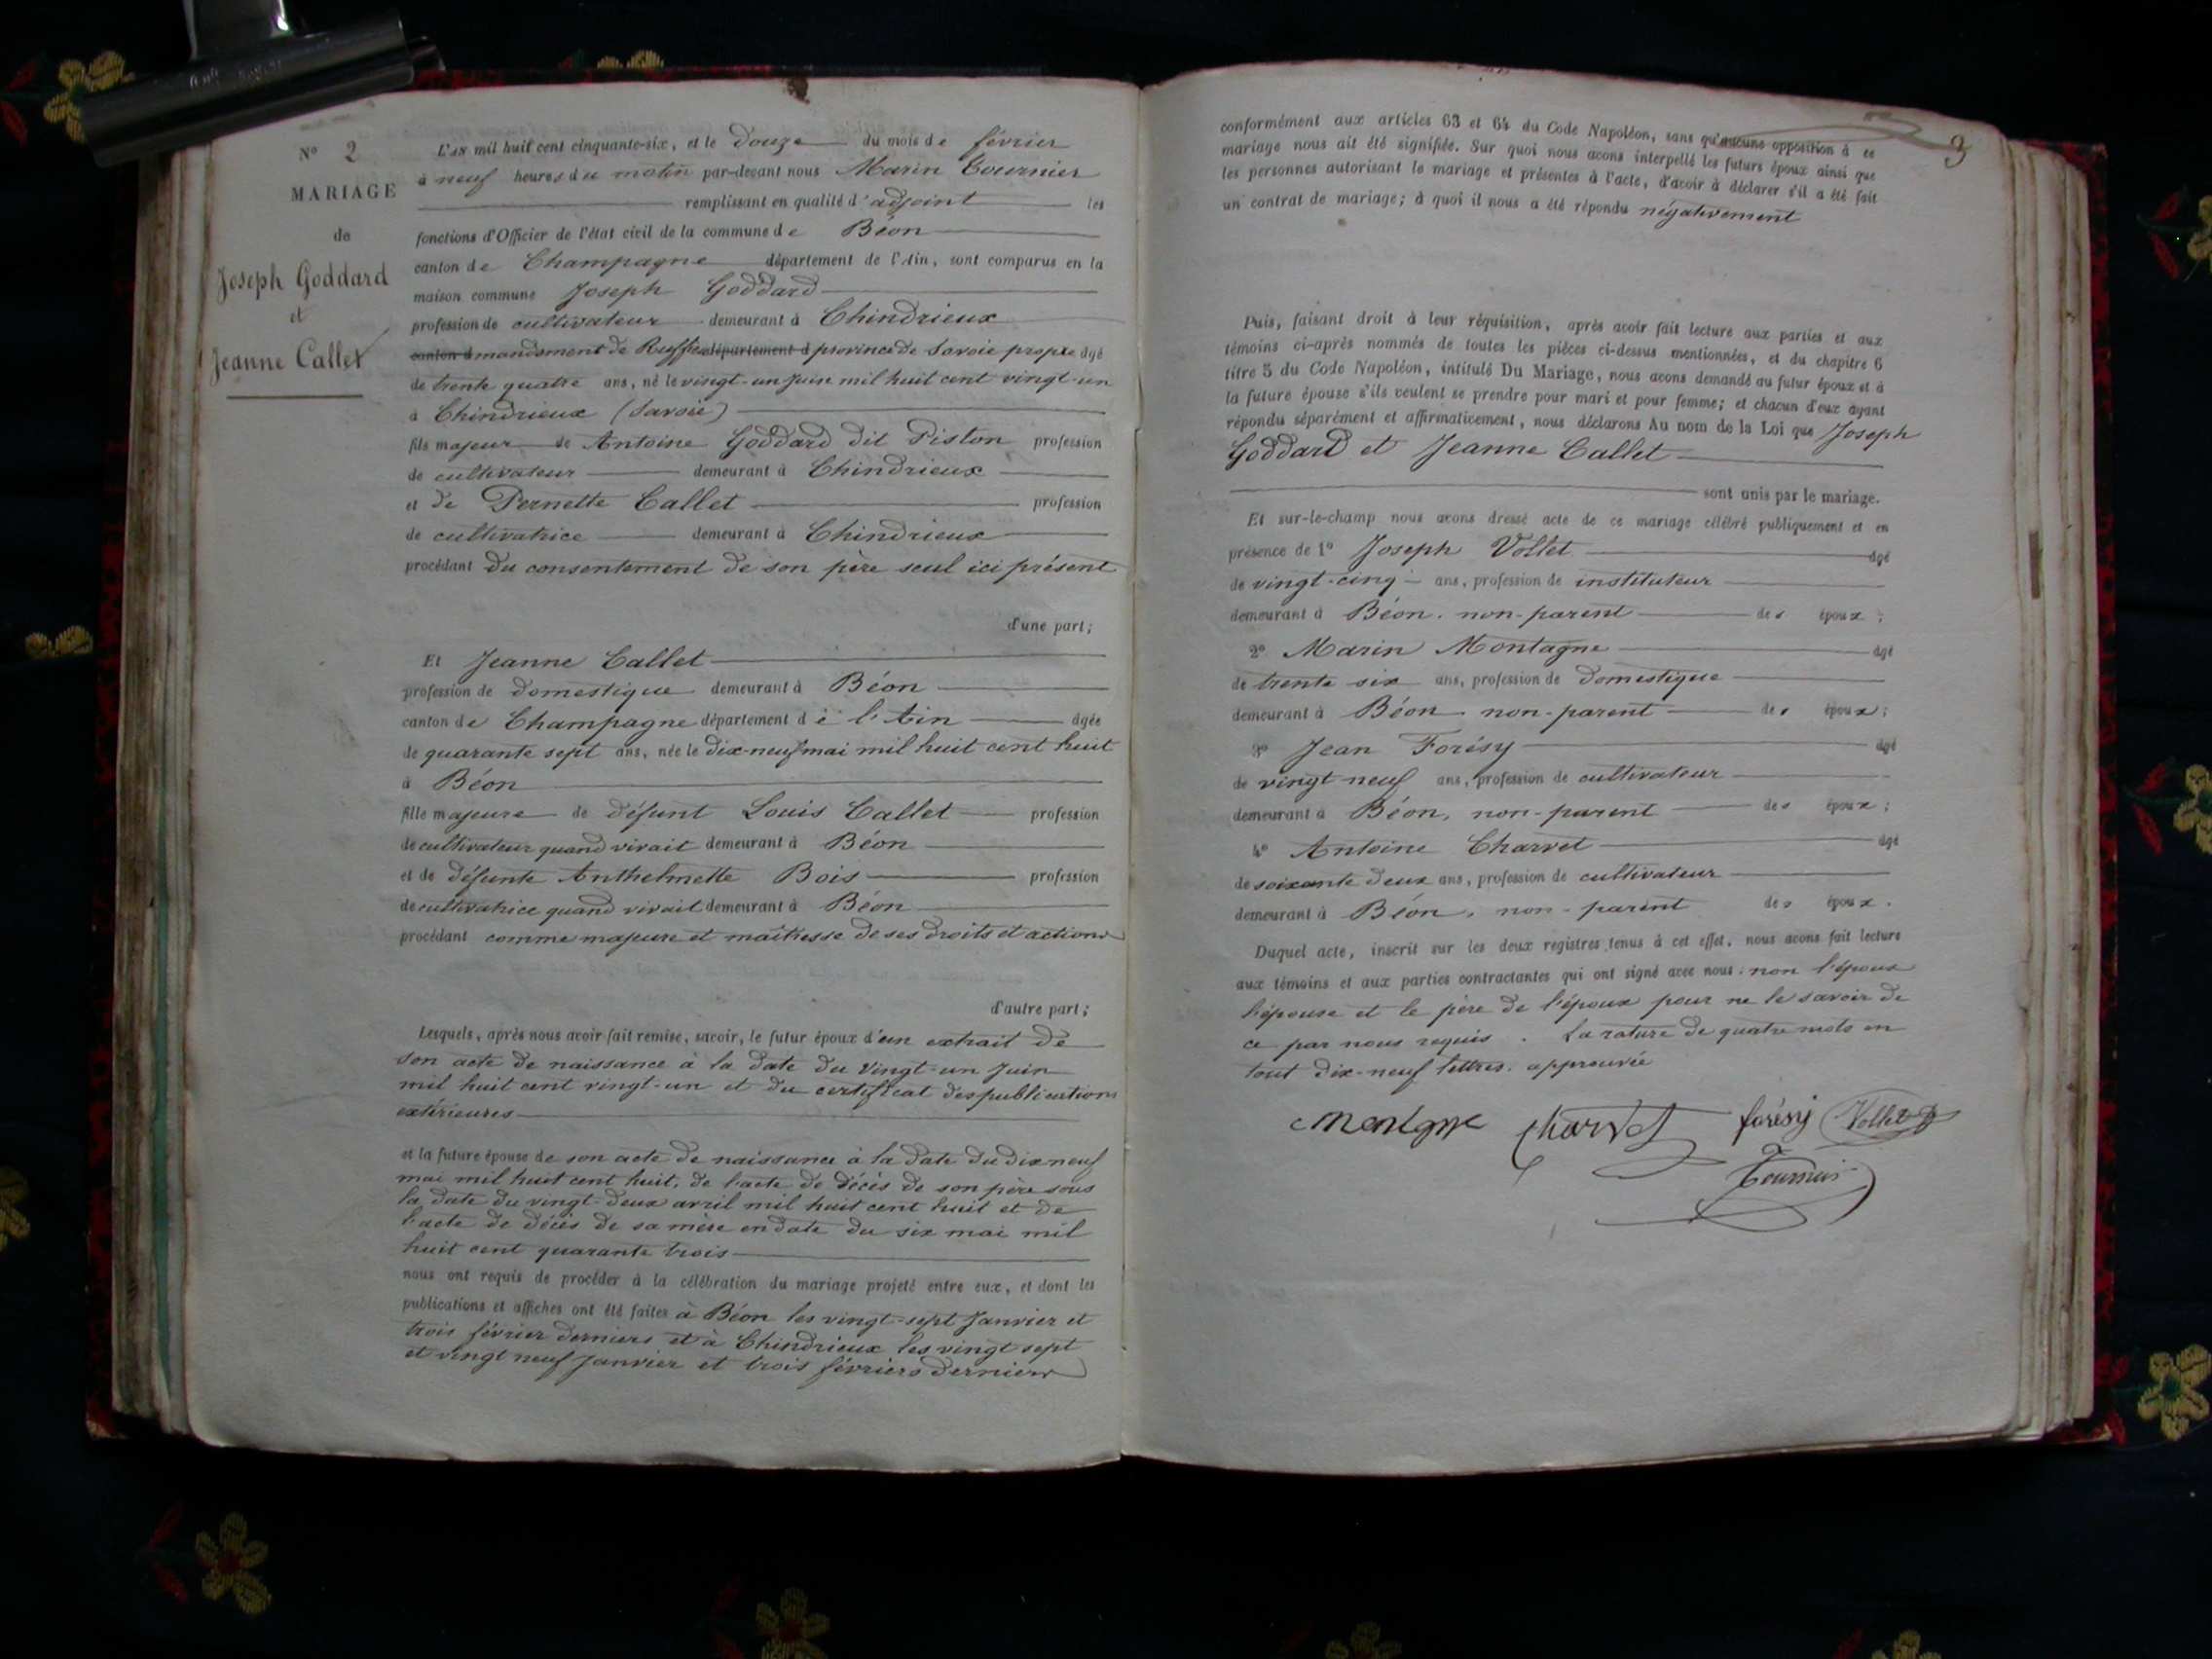 N° 2
MARIAGE
de
Joseph Goddard
et
Jeanne Callet
L'AN mil huit cent cinquante-six, et le douze du mois de février
à neuf heures du matin par-devant nous Marin Tournier
remplissant en qualité d'adjoint les
fonctions d'Officier de l'état civil de la commune de Béon
canton de Champagne département de l'Ain, sont comparus en la
maison commune Joseph Goddard
profession de cultivateur demeurant à Chindrieux
canton d mandement de Ruffieu département d province de Savoie propre âgé
de trente quatre ans, né le vingt-un Juin mil huit cent vingt-un
à Chindrieux (Savoie)
fils majeur de Antoine Goddard dit Piston profession
de cultivateur demeurant à Chindrieux
et de Pernette Callet profession
de cultivatrice demeurant à Chindrieux
procédant du consentement de son père seul ici présent
d'une part;
Et Jeanne Callet
profession de domestique demeurant à Béon
canton de Champagne département de l'Ain âgée
de quarante sept ans, née le dix-neuf mai mil huit cent huit
à Béon
fille majeure de défunt Louis Callet profession
de cultivateur quand vivait demeurant à Béon
et de défunte Anthelmette Bois profession
de cultivatrice quand vivait demeurant à Béon
procédant comme majeure et maîtresse de ses droits et actions
d'autre part;
Lesquels, après nous avoir fait remise, savoir, le futur époux d'un extrait de
son acte de naissance à la date du vingt-un Juin
mil huit cent vingt-un et du certificat des publications
extérieures
et la future épouse de son acte de naissance à la date du dix neuf
mai mil huit cent huit, de l'acte de décès de son père sous
la date du vingt-deux avril mil huit cent huit et de
l'acte de décès de sa mère en date du six mai mil
huit cent quarante trois
nous ont requis de procéder à la célébration du mariage projeté entre eux, et dont les
publications et affiches ont été faites à Béon les vingt-sept Janvier et
trois février derniers et à Chindrieux les vingt sept
et vingt neuf Janvier et trois févriers derniers
3
conformément aux articles 63 et 64 du Code Napoléon, sans qu'aucune opposition à ce
mariage nous ait été signifiée. Sur quoi nous avons interpellé les futurs époux ainsi que
les personnes autorisant le mariage et présentes à l'acte, d'avoir à déclarer s'il a été fait
un contrat de mariage; à quoi il nous a été répondu négativement
Puis, faisant droit à leur réquisition, après avoir fait lecture aux parties et aux
témoins ci-après nommés de toutes les pièces ci-dessus mentionnées, et du chapitre 6
titre 5 du Code Napoléon, intitulé Du Mariage, nous avons demandé au futur époux et à
la future épouse s'ils veulent se prendre pour mari et pour femme; et chacun d'eux ayant
répondu séparément et affirmativement, nous déclarons Au nom de la Loi que Joseph
Goddard et Jeanne Callet
sont unis par le mariage.
Et sur-le-champ nous avons dressé acte de ce mariage célébré publiquement et en
présence de 1° Joseph Vollet âgé
de vingt-cinq ans, profession de instituteur
demeurant à Béon. non-parent des époux;
2° Marin Montagne âgé
de trente six ans, profession de domestique
demeurant à Béon non-parent des époux;
3° Jean Forésy âgé
de vingt neuf ans, profession de cultivateur
demeurant à Béon, non-parent des époux;
4° Antoine Charvet âgé
de soixante deux ans, profession de cultivateur
demeurant à Béon, non-parent des époux.
Duquel acte, inscrit sur les deux registres tenus à cet effet, nous avons fait lecture
aux témoins et aux parties contractantes qui ont signé avec nous. non l'époux
l'épouse et le père de l'époux pour ne le savoir de
ce par nous requis. La rature de quatre mots en
tout dix-neuf lettres. approuvée
Montagne Charvet forésy Vollet
Tournier